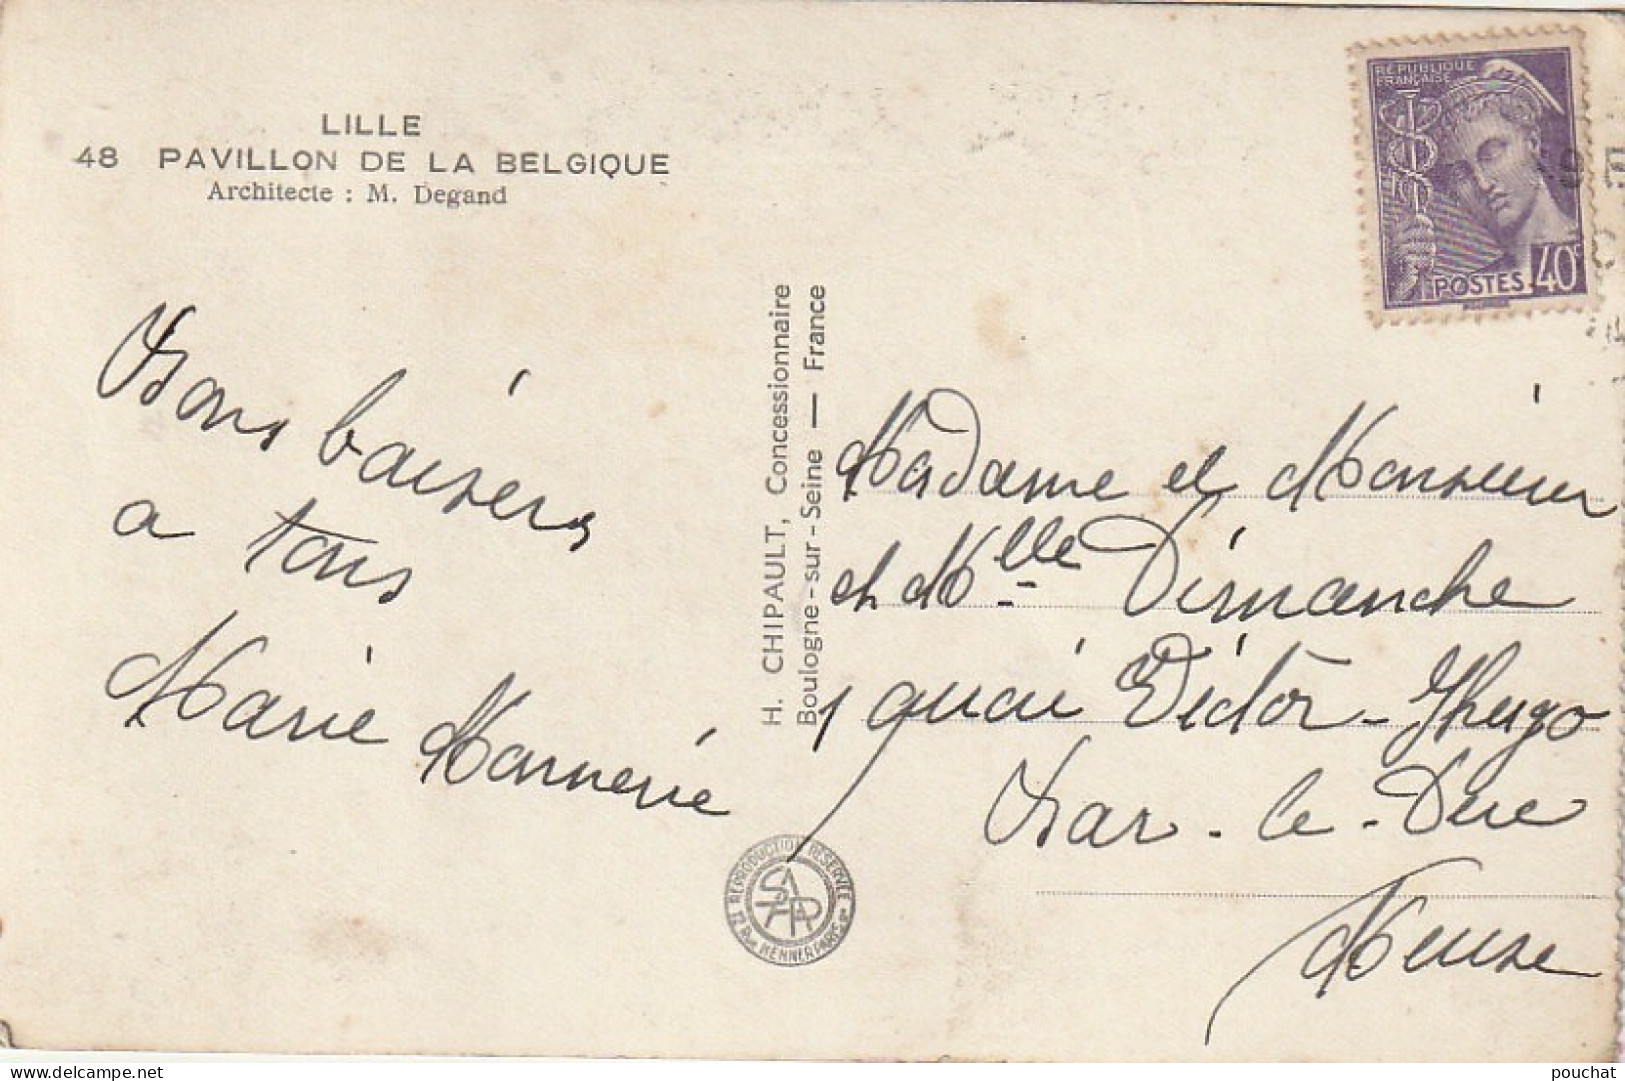 LILLE
48 PAVILLON DE LA BELGIQUE
Architecte : M. Degand
Bons baisers
a tous
Marie
H. CHIPAULT, Concessionnaire
Boulogne-sur-Seine — France
REPRODUCTION RÉSERVÉE
RÉPUBLIQUE
FRANÇAISE
POSTES 40c
Madame et Monsieur
et Mlle Dimanche
1 quai Victor-Hugo
Bar-le-Duc
Meuse
delcampe.net
pouchat